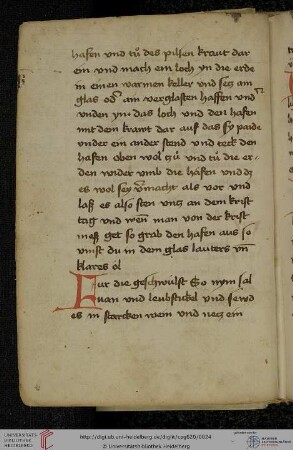 hafen vnd tů des pilsen kraut dar
ein vnd mach ein loch yn die erde
in einen warmen keller vnd secz ain
glas od' ain verglasten haffen vnd
vnden yn das loch vnd den hafen
mit dem kraut dar auf das sy paide
vnder ein ander stend vnd teck den
hafen oben wol zů vnd tů die er-
den wider vmb die häfen vnd
es wol sey v'macht als vor vnd
laß es also sten vncz an dem krist
tag vnd wen man von der krist
meß get so grab den hafen aus so
vinst du in dem glas lauters vn
klares öl
Fur die geschwulst So nym sal
vian vnd leubstickel vnd sewd
es in starcken wein vnd necz ein
UNIVERSITÄTS-
BIBLIOTHEK
HEIDELBERG
http://digi.ub.uni-heidelberg.de/diglit/cpg620/0024
© Universitätsbibliothek Heidelberg